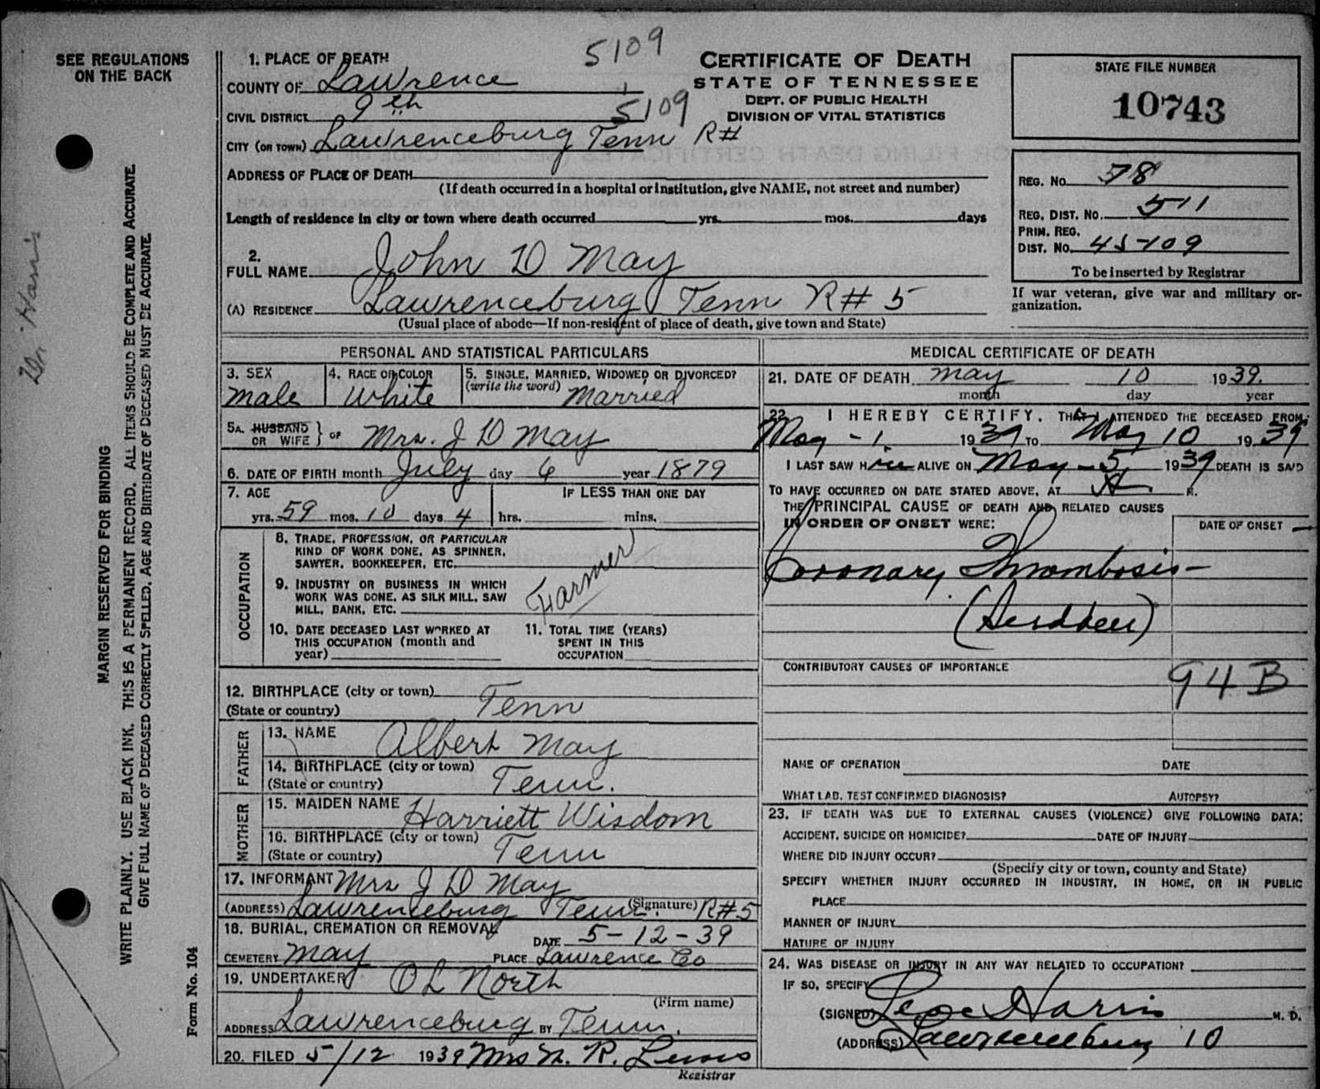 SEE REGULATIONS
ON THE BACK
MARGIN RESERVED FOR BINDING
WRITE PLAINLY. USE BLACK INK. THIS IS A PERMANENT RECORD. ALL ITEMS SHOULD BE COMPLETE AND ACCURATE.
GIVE FULL NAME OF DECEASED CORRECTLY SPELLED. AGE AND BIRTHDATE OF DECEASED MUST BE ACCURATE.
Form No. 104
Dr. Harris
5109
CERTIFICATE OF DEATH
STATE OF TENNESSEE
DEPT. OF PUBLIC HEALTH
DIVISION OF VITAL STATISTICS
STATE FILE NUMBER
10743
REG. No. 78
REG. DIST. NO. 511
PRIM. REG.
DIST. NO. 45109
To be inserted by Registrar
If war veteran, give war and military or-
ganization.
1. PLACE OF DEATH
COUNTY OF Lawrence
CIVIL DISTRICT 9th 5109
CITY (OR TOWN) Lawrenceburg Tenn R#
ADDRESS OF PLACE OF DEATH
(If death occurred in a hospital or institution, give NAME, not street and number)
Length of residence in city or town where death occurred yrs. mos. days
2.
FULL NAME John D May
(A) RESIDENCE Lawrenceburg Tenn R# 5
(Usual place of abode—If non-resident of place of death, give town and State)
PERSONAL AND STATISTICAL PARTICULARS
3. SEX male
4. RACE OR COLOR White
5. SINGLE, MARRIED, WIDOWED OR DIVORCED?
(write the word) Married
5A. HUSBAND
OR WIFE } OF Mrs. J D May
6. DATE OF BIRTH month July day 6 year 1879
7. AGE IF LESS THAN ONE DAY
yrs. 59 mos. 10 days 4 hrs. mins.
OCCUPATION
8. TRADE, PROFESSION, OR PARTICULAR
KIND OF WORK DONE, AS SPINNER,
SAWYER, BOOKKEEPER, ETC.
Farmer
9. INDUSTRY OR BUSINESS IN WHICH
WORK WAS DONE, AS SILK MILL, SAW
MILL, BANK, ETC.
10. DATE DECEASED LAST WORKED AT
THIS OCCUPATION (month and
year)
11. TOTAL TIME (YEARS)
SPENT IN THIS
OCCUPATION
12. BIRTHPLACE (city or town)
(State or country) Tenn
FATHER
13. NAME Albert May
14. BIRTHPLACE (city or town)
(State or country) Tenn.
MOTHER
15. MAIDEN NAME Harriett Wisdom
16. BIRTHPLACE (city or town)
(State or country) Tenn
17. INFORMANT Mrs J D May
(ADDRESS) Lawrenceburg Tenn. (Signature) R#5
18. BURIAL, CREMATION OR REMOVAL
DATE 5-12-39
CEMETERY May PLACE Lawrence Co
19. UNDERTAKER O L North
(Firm name)
ADDRESS Lawrenceburg BY Tenn.
20. FILED 5/12 1939 Mrs M. R. Lewis
Registrar
MEDICAL CERTIFICATE OF DEATH
21. DATE OF DEATH May 10 1939.
month day year
22. I HEREBY CERTIFY, THAT I ATTENDED THE DECEASED FROM
May - 1 1939 TO May 10 1939
I LAST SAW Him ALIVE ON May - 5, 1939 DEATH IS SAID
TO HAVE OCCURRED ON DATE STATED ABOVE, AT A M.
THE PRINCIPAL CAUSE OF DEATH AND RELATED CAUSES
IN ORDER OF ONSET WERE:
DATE OF ONSET
Coronary Thrombosis -
(Sudden)
CONTRIBUTORY CAUSES OF IMPORTANCE
94 B
NAME OF OPERATION DATE
WHAT LAB. TEST CONFIRMED DIAGNOSIS? AUTOPSY?
23. IF DEATH WAS DUE TO EXTERNAL CAUSES (VIOLENCE) GIVE FOLLOWING DATA:
ACCIDENT, SUICIDE OR HOMICIDE? DATE OF INJURY
WHERE DID INJURY OCCUR?
(Specify city or town, county and State)
SPECIFY WHETHER INJURY OCCURRED IN INDUSTRY, IN HOME, OR IN PUBLIC
PLACE
MANNER OF INJURY
NATURE OF INJURY
24. WAS DISEASE OR INJURY IN ANY WAY RELATED TO OCCUPATION?
IF SO, SPECIFY
(SIGNED) Leon Harris M. D.
(ADDRESS) Lawrenceburg 10